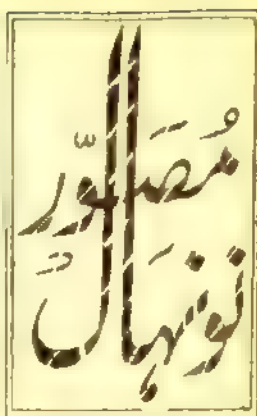 مُصَوِّر
نَونہَال